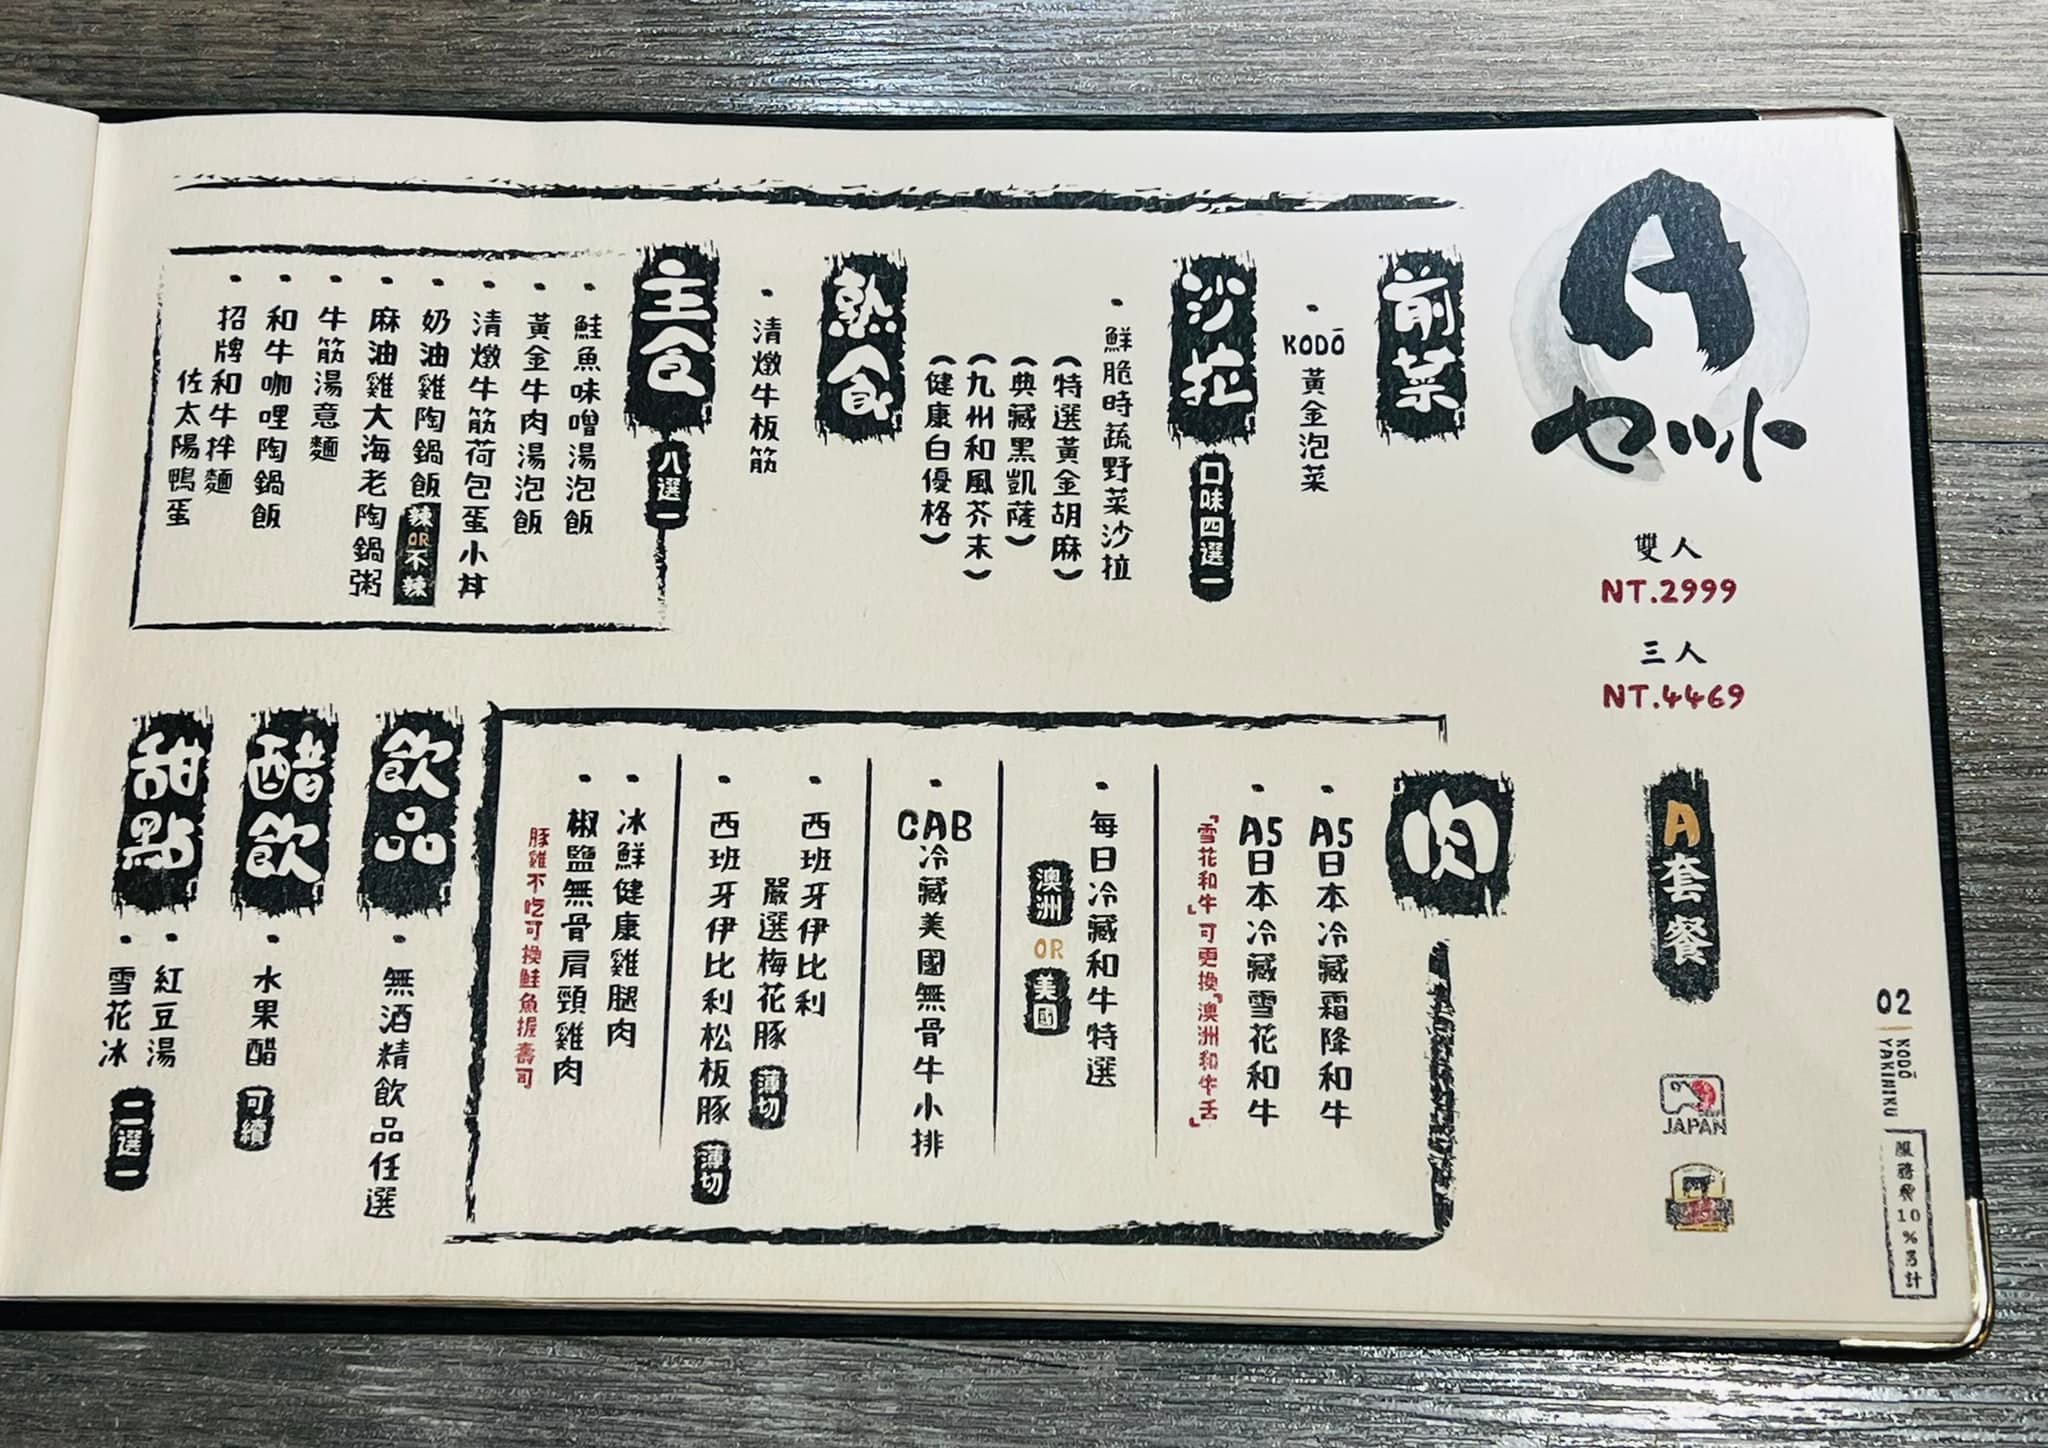 A
セット
雙人
NT.2999
三人
NT.4469
A套餐
JAPAN
02
KODŌ
YAKINIKU
服務費10%另計
前菜
・KODŌ黃金泡菜
沙拉
口味四選一
・鮮脆時蔬野菜沙拉
(特選黃金胡麻)
(典藏黑凱薩)
(九州和風芥末)
(健康白優格)
熟食
・清燉牛板筋
主食
八選一
・鮭魚味噌湯泡飯
・黃金牛肉湯泡飯
・清燉牛筋荷包蛋小丼
・奶油雞陶鍋飯 辣OR不辣
・麻油雞大海老陶鍋粥
・牛筋湯意麵
・和牛咖哩陶鍋飯
・招牌和牛拌麵
佐太陽鴨蛋
肉
・A5日本冷藏霜降和牛
・A5日本冷藏雪花和牛
『雪花和牛』可更換『澳洲和牛舌』
・每日冷藏和牛特選
澳洲OR美國
・CAB冷藏美國無骨牛小排
・西班牙伊比利
嚴選梅花豚 薄切
・西班牙伊比利松板豚 薄切
・冰鮮健康雞腿肉
・椒鹽無骨肩頸雞肉
豚雞不吃可換鮭魚握壽司
飲品
・無酒精飲品任選
醋飲
・水果醋 可續
甜點
・紅豆湯
・雪花冰
二選一